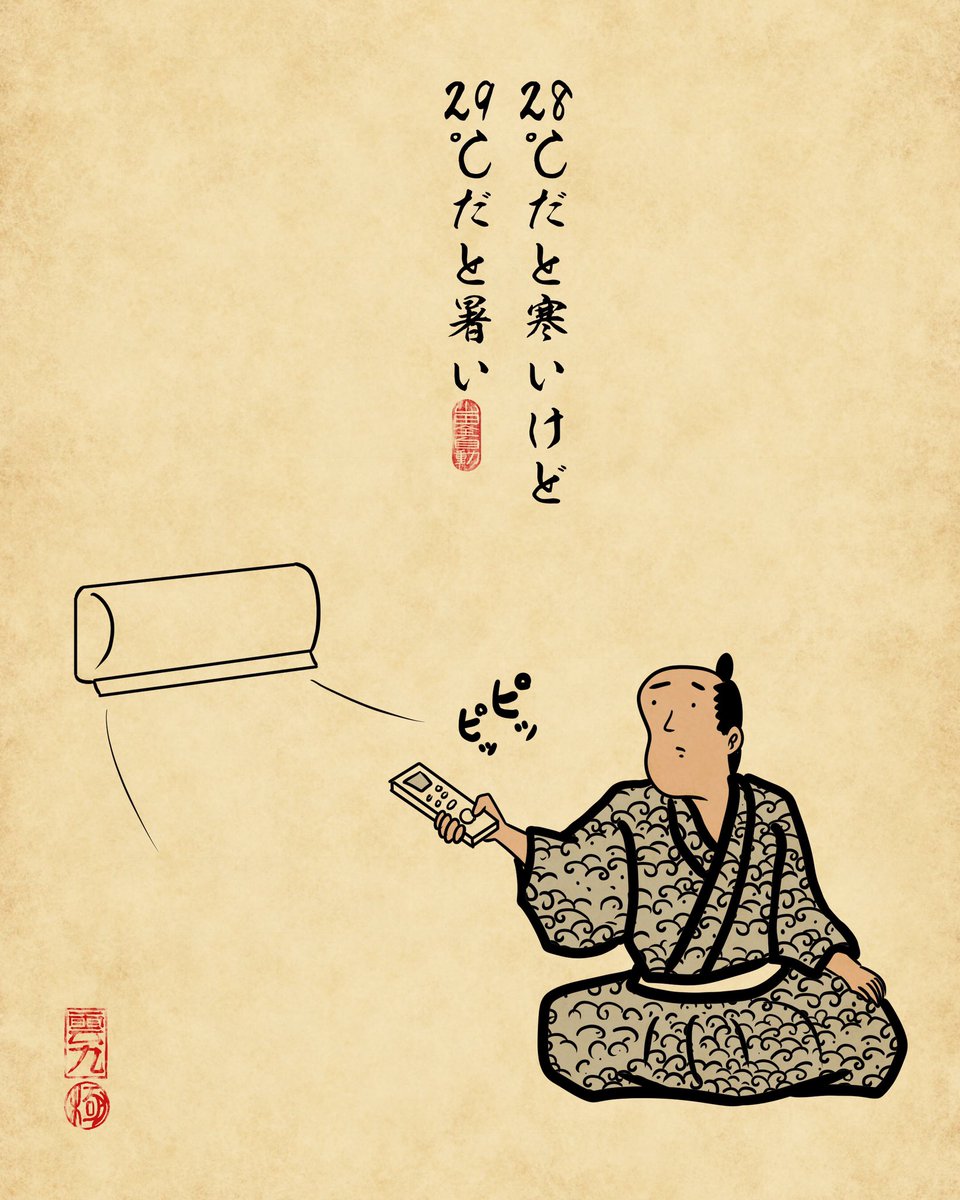 28℃だと寒いけど
29℃だと暑い
ピッ
ピッ
雲九
極